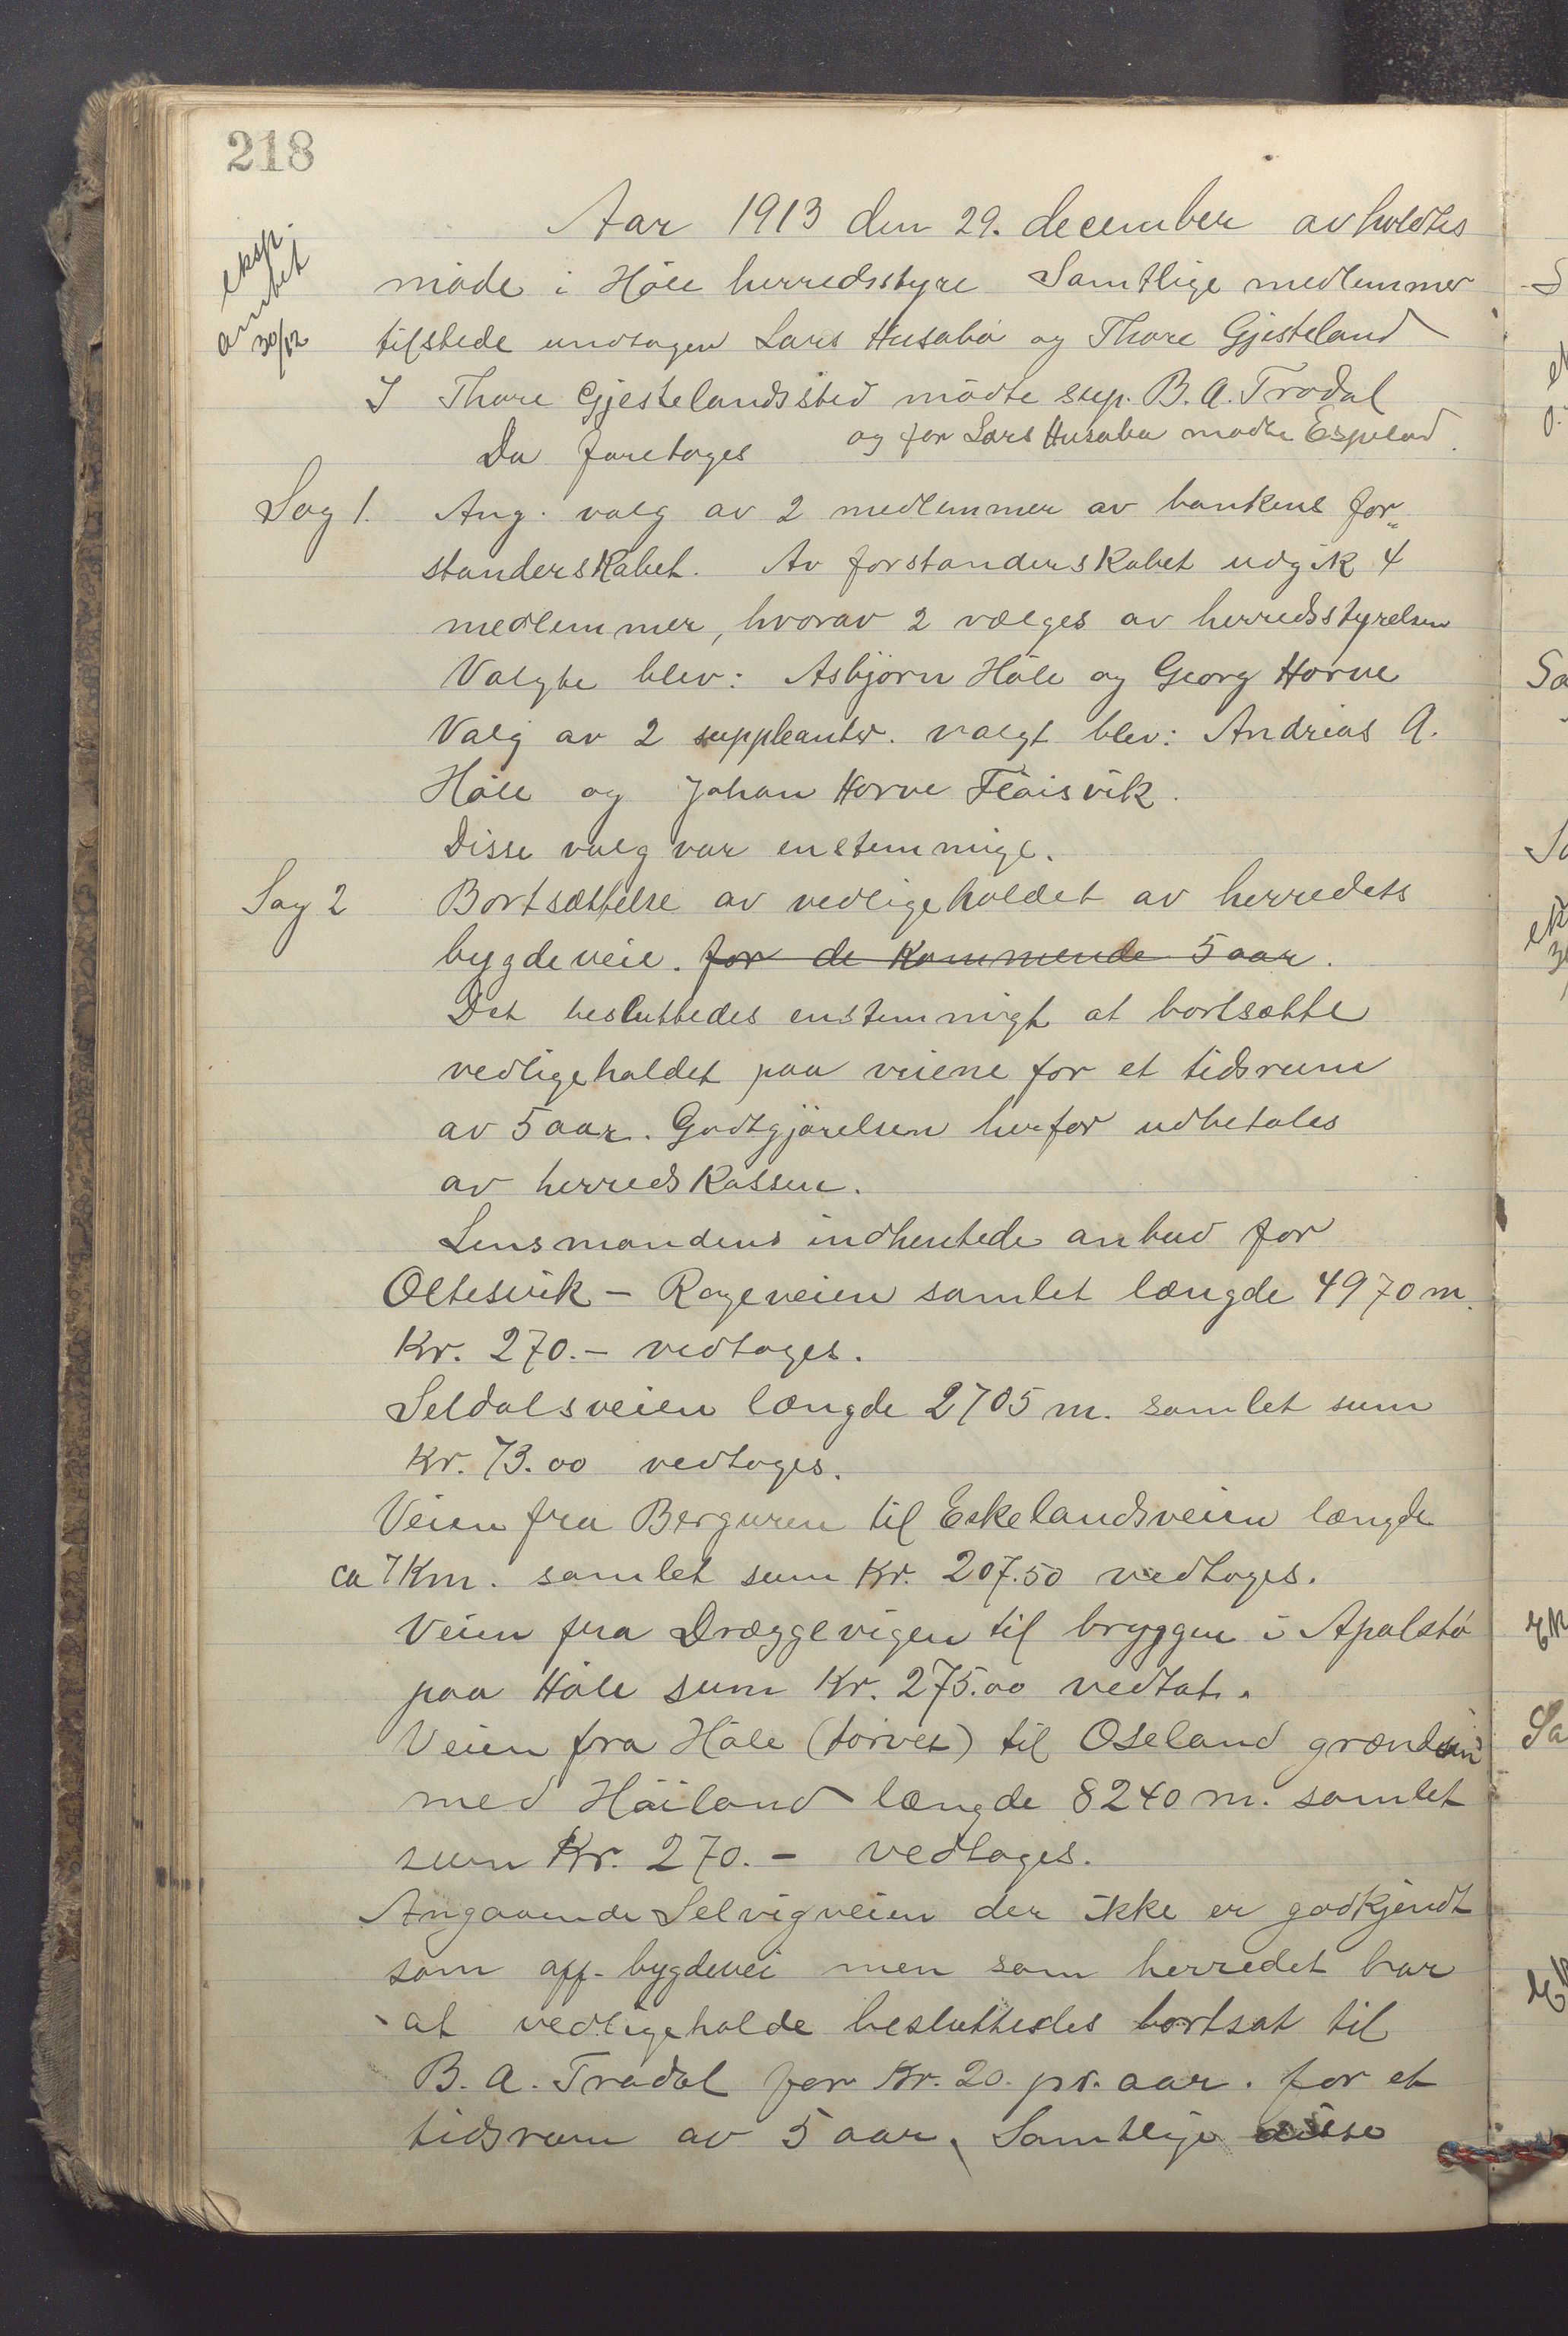 218
eksp.
amtet
30/12
Aar 1913 den 29. december avholdtes
møde i Høle herredsstyre Samtlige medlemmer
tilstede undtagen Lars Husabø og Thore Gjesteland
I Thore Gjestelands sted mødte sup. B. A. Trodal
og for Lars Husabø mødte Espeland.
Da foretoges
Sag 1. Ang. valg av 2 medlemmer av bankens for-
standerskabet. Av forstanderskabet udgik 4
medlemmer, hvorav 2 vælges av herredsstyrelsen
Valgte blev: Asbjørn Høle og Georg Horve
Valg av 2 suppleanter. valgt blev: Andreas A.
Høle og Johan Horve Fløisvik.
Disse valg var enstemmige.
Sag 2 Bortsættelse av vedligeholdet av herredets
bygdeveie. for de kommende 5 aar.
Det besluttedes enstemmigt at bortsætte
vedligeholdet paa veiene for et tidsrum
av 5 aar. Godtgjørelsen herfor udbetales
av herredskassen.
Lensmandens indhentede anbud for
Oltesvik - Rageveien samlet længde 4970 m.
Kr. 270.- vedtoges.
Seldalsveien længde 2705 m. samlet sum
Kr. 73.00 vedtoges.
Veien fra Berguren til Eskelandsveien længde
ca 7 Km. samlet sum Kr. 207.50 vedtoges.
Veien fra Dræggevigen til bryggen i Apalstø
paa Høle sum Kr. 275.00 vedtat.
Veien fra Høle (torvet) til Oseland grændsen
med Høiland længde 8240 m. samlet
sum Kr. 270.- vedtoges.
Angaaende Selvigveien der ikke er godkjendt
som off. bygdevei men som herredet har
at vedligeholde besluttedes bortsat til
B. A. Trodal for Kr. 20. pr. aar. for et
tidsrum av 5 aar. Samtlige disse